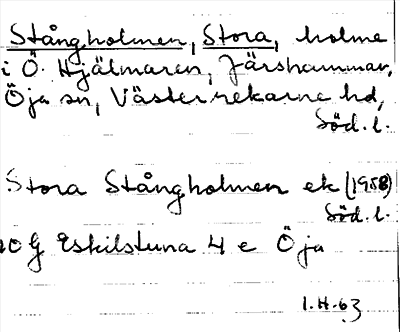 Stångholmen, Stora, holme
i Ö. Hjälmaren, Järshammar,
Öja sn, Västerrekarne hd,
Söd. l.
Stora Stångholmen ek (1958)
Söd. l.
10 G Eskilstuna 4 e Öja
1.H.63